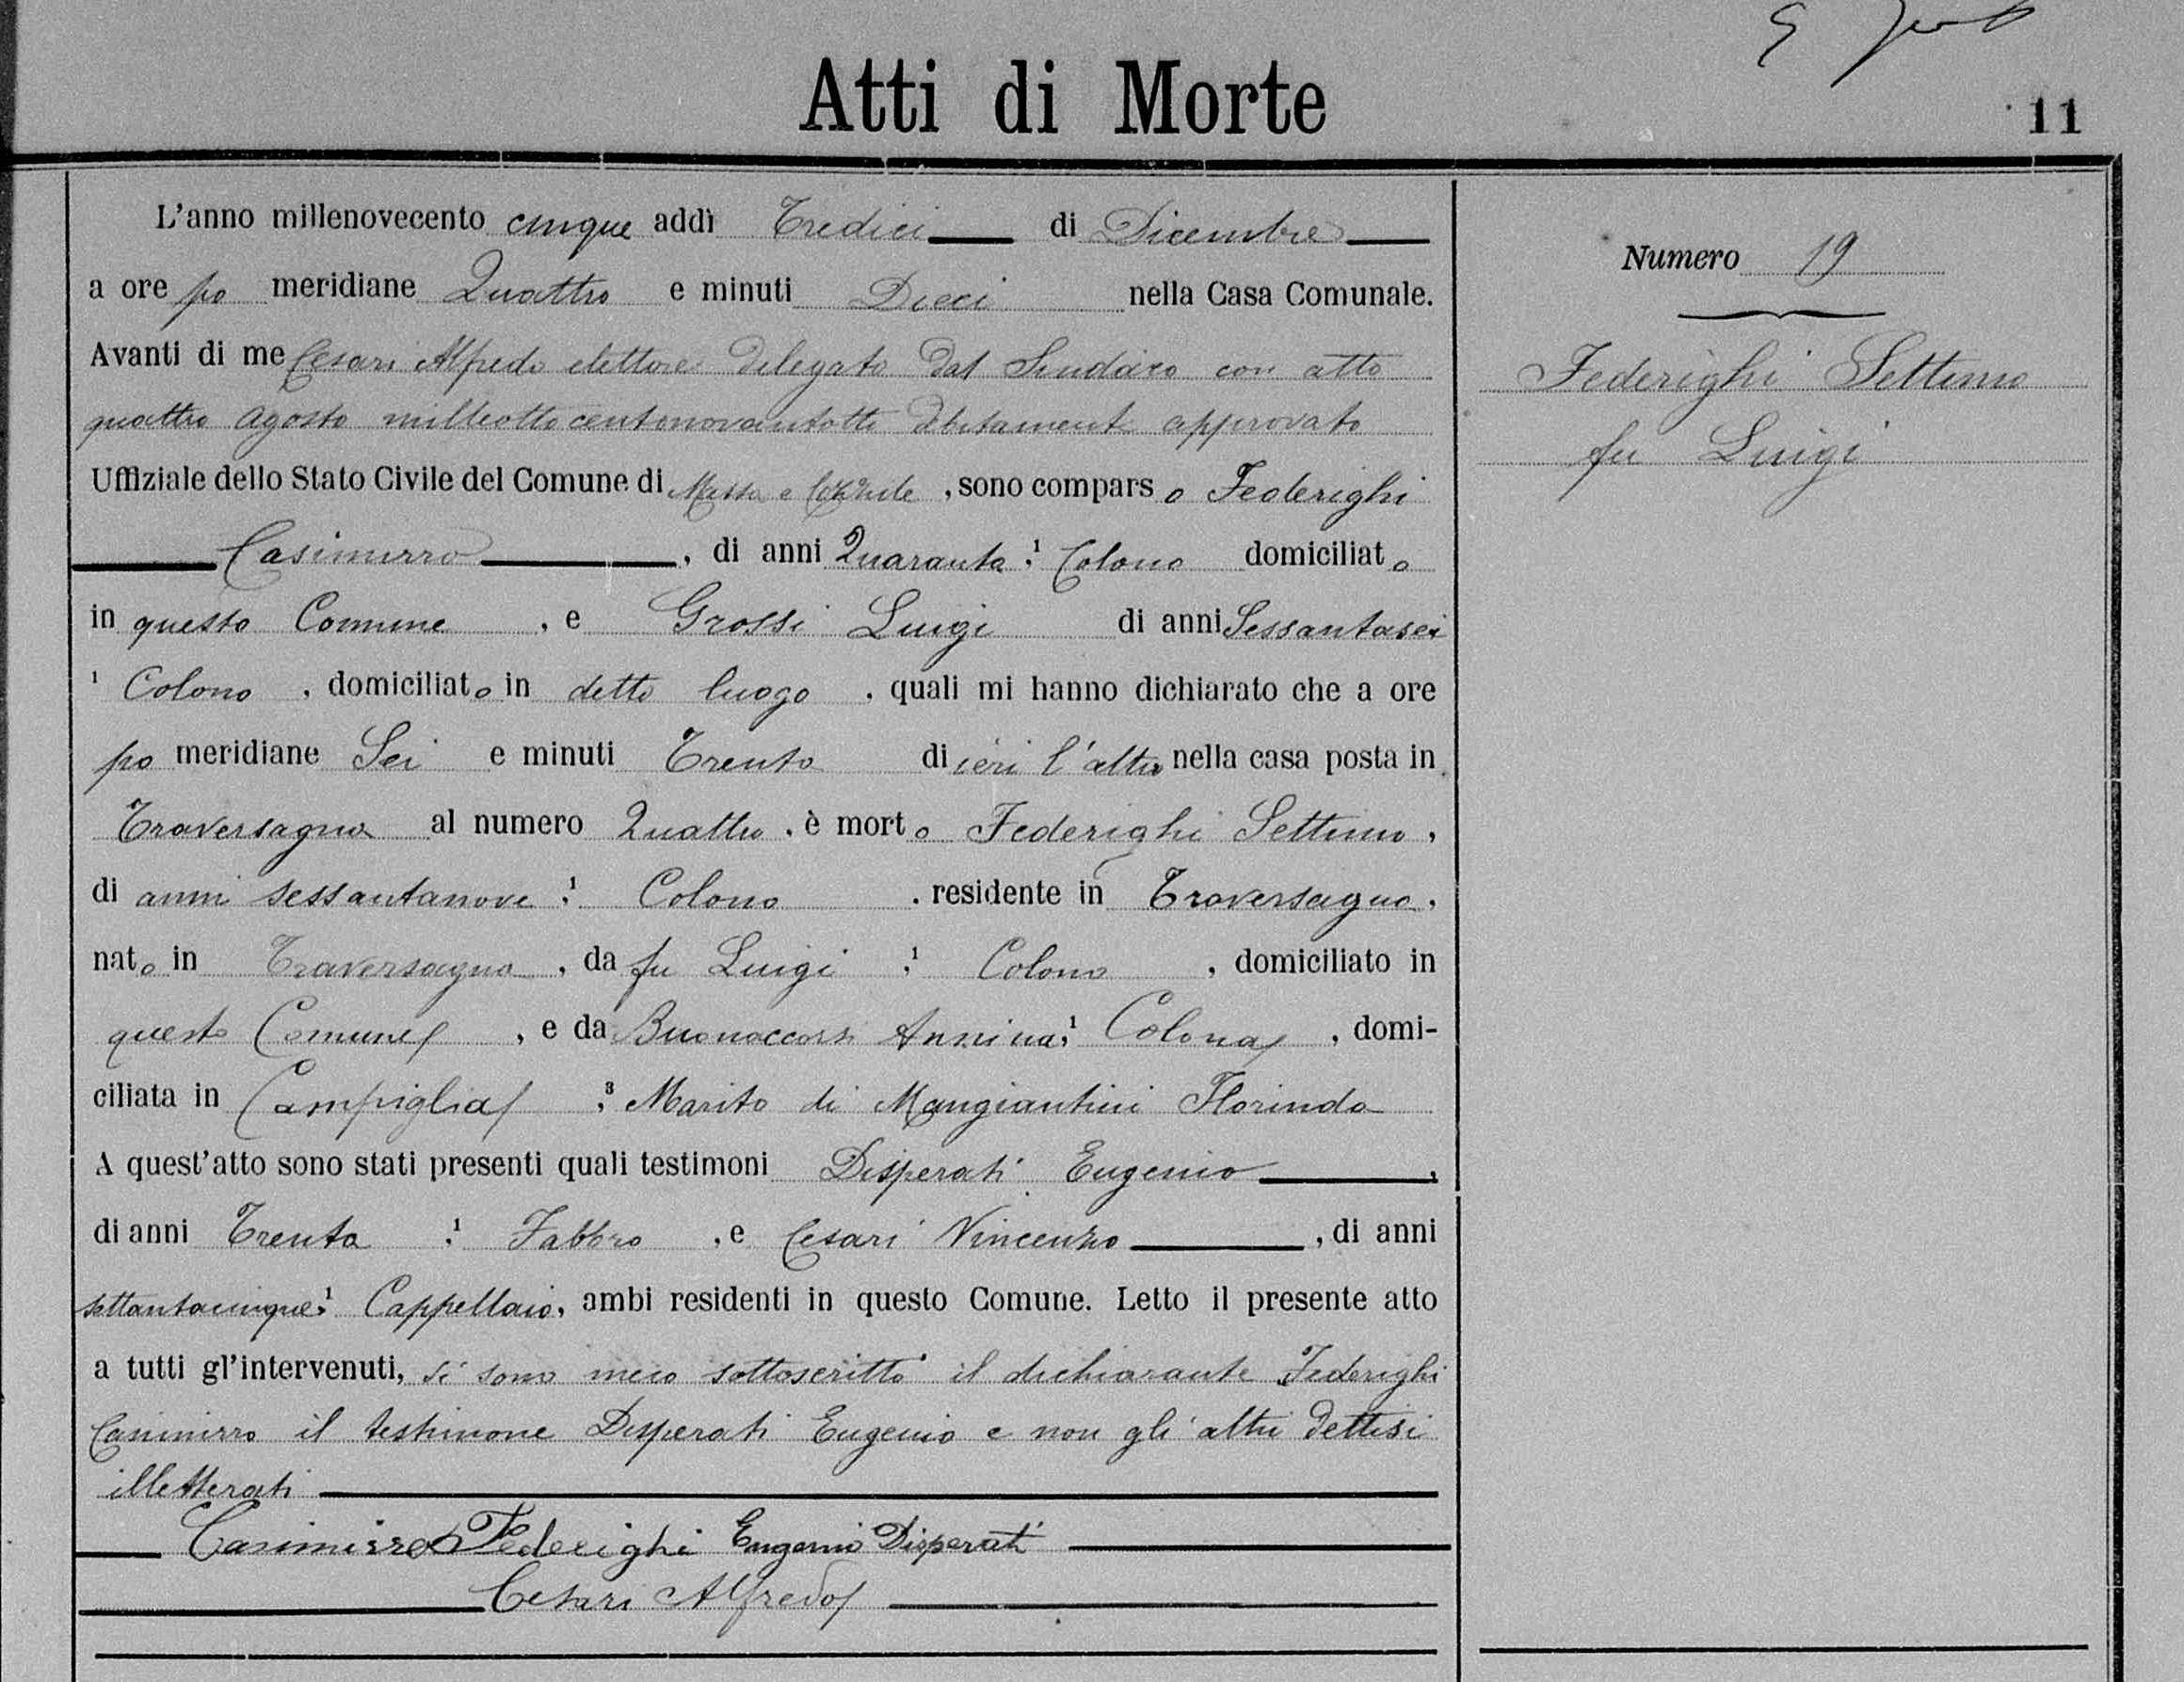 Atti di Morte
11
L'anno millenovecento cinque addì Tredici di Dicembre
a ore po meridiane Quattro e minuti Dieci nella Casa Comunale.
Avanti di me Cesari Alfredo elettore delegato dal Sindaco con atto
quattro agosto milleottocentonovantotto debitamente approvato
Uffiziale dello Stato Civile del Comune di Massa e Cozzile, sono comparso Federighi
Casimirro, di anni Quaranta;¹ Colono domiciliato
in questo Comune, e Grossi Luigi di anni Sessantasei
¹ Colono, domiciliato in detto luogo, quali mi hanno dichiarato che a ore
po meridiane Sei e minuti Trenta di ieri l'altro nella casa posta in
Traversagna al numero Quattro, è morto Federighi Settimo,
di anni sessantanove;¹ Colono, residente in Traversagna,
nato in Traversagna, da fu Luigi;¹ Colono, domiciliato in
questo Comune, e da Buonaccorsi Annina;¹ Colona, domi-
ciliata in Campiglia;³ Marito di Mangiantini Florinda
A quest'atto sono stati presenti quali testimoni Disperati Eugenio,
di anni Trenta;¹ Fabbro, e Cesari Vincenzo, di anni
settantacinque;¹ Cappellaio, ambi residenti in questo Comune. Letto il presente atto
a tutti gl'intervenuti, si sono meco sottoscritti il dichiarante Federighi
Casimirro il testimone Disperati Eugenio e non gli altri dettisi
illetterati
Casimirro Federighi Eugenio Disperati
Cesari Alfredo
Numero 19
Federighi Settimo
fu Luigi